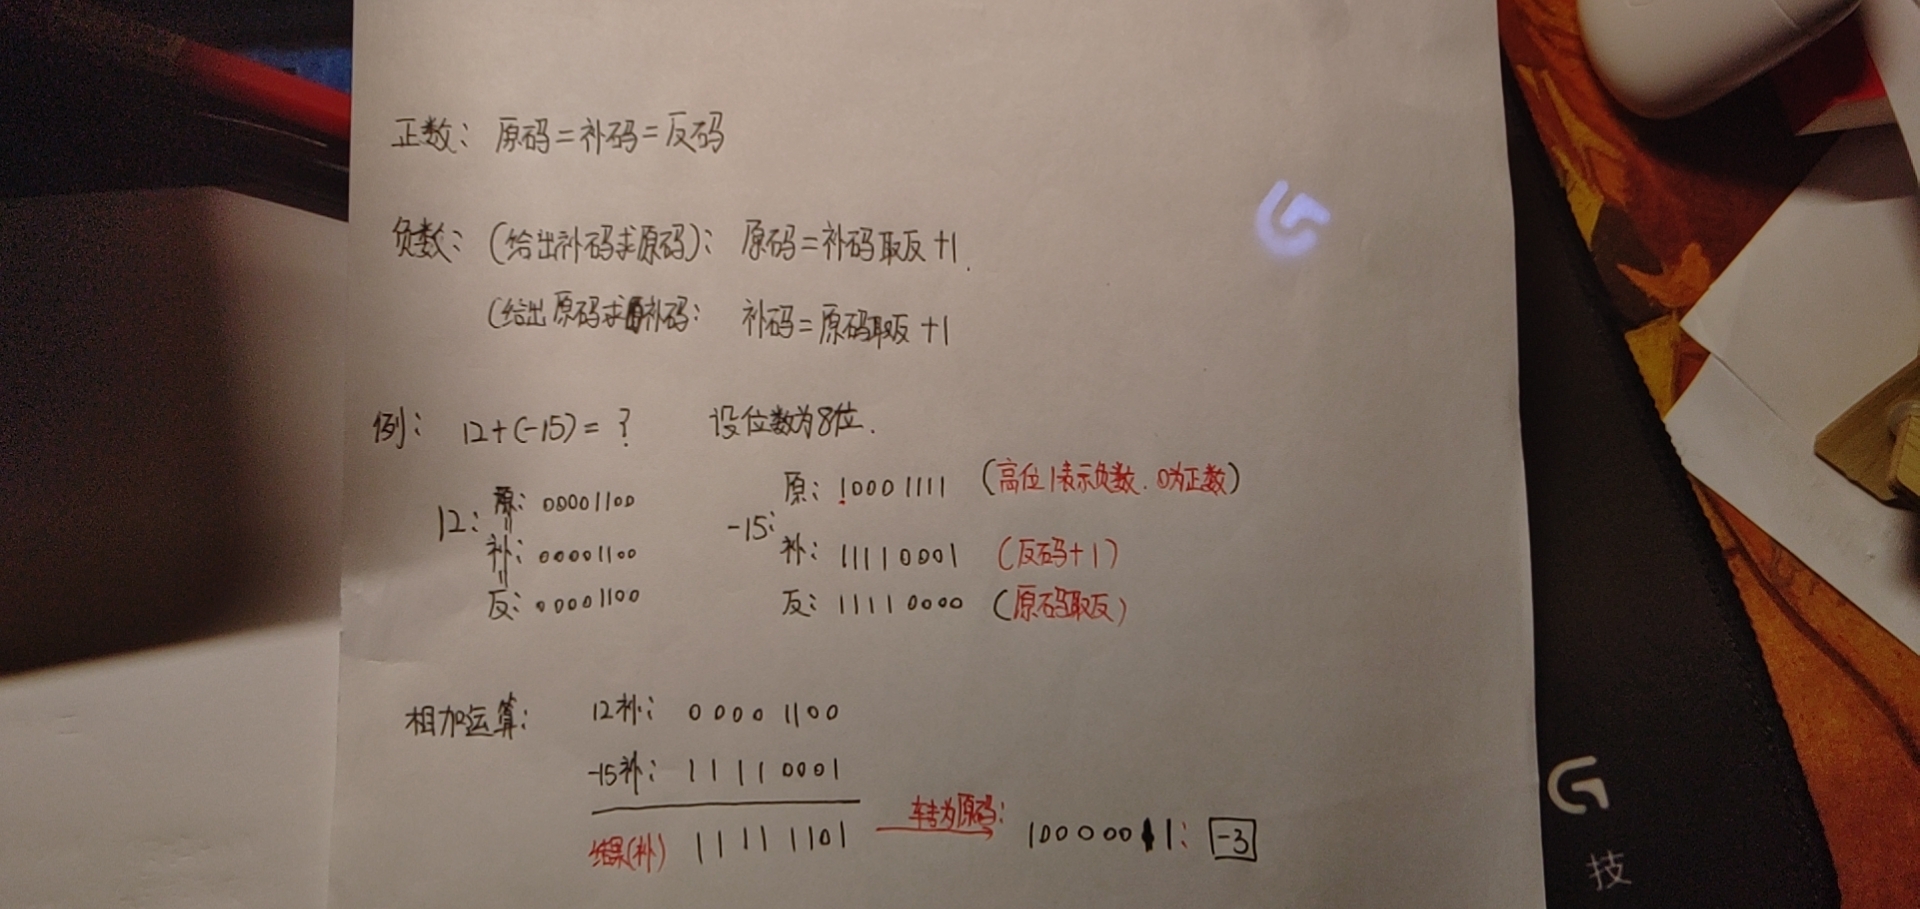 正数：原码=补码=反码
负数：(给出补码求原码)：原码=补码取反+1.
(给出原码求补码：补码=原码取反+1
例：12+(-15)=？ 设位数为8位.
12：原：00001100
补：00001100
反：00001100
-15：原：10001111 (高位1表示负数.0为正数)
补：11110001 (反码+1)
反：11110000 (原码取反)
相加运算：12补：00001100
-15补：11110001
结果(补) 11111101 转为原码：10000011：-3
G
技